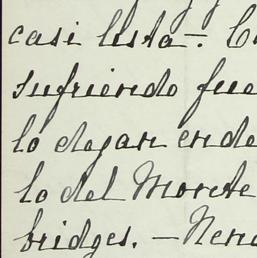 casi lista -. C
sufriendo fue
lo dejan ende
lo del Morete
bridges. - Nen